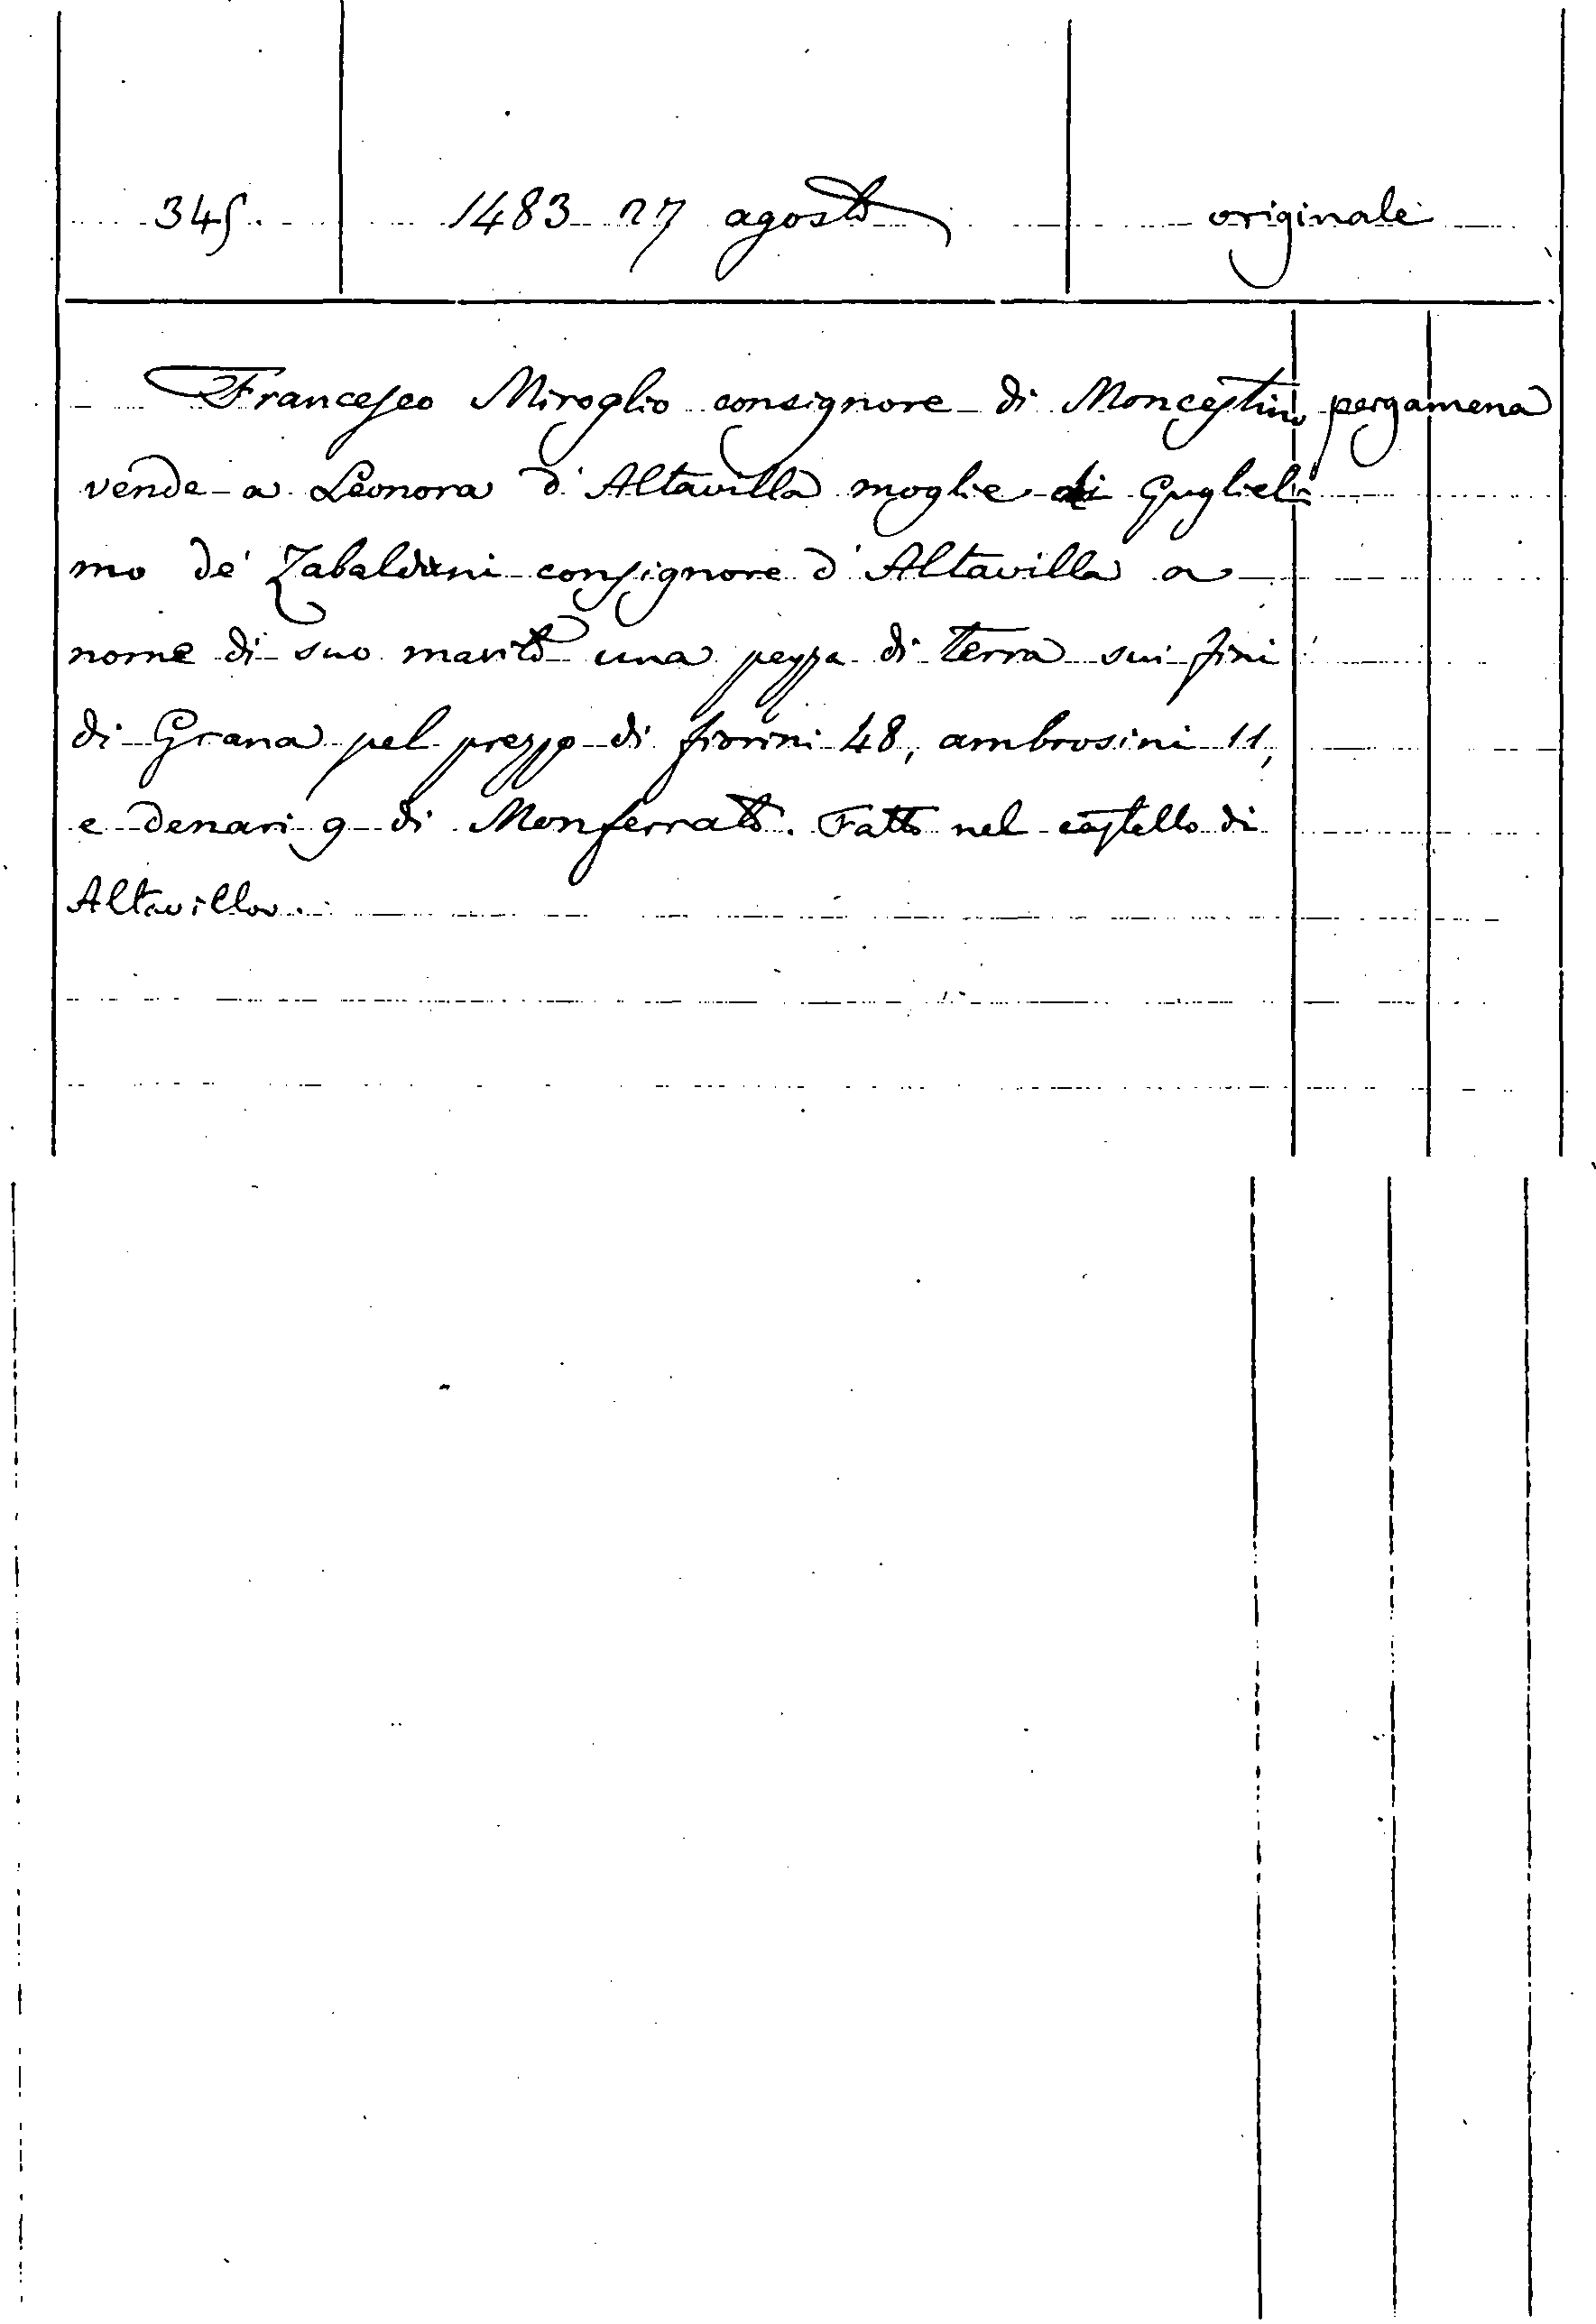 345. 1483 27 agosto originale
Francesco Miroglio consignore di Moncestino pergamena
vende a Leonora d'Altavilla moglie di Gugliel=
mo de' Zabaldani consignore d'Altavilla a
nome di suo marito una pezza di terra sui fini
di Grana pel prezzo di fiorini 48, ambrosini 11,
e denari 9 di Monferrato. Fatto nel castello di
Altavilla.